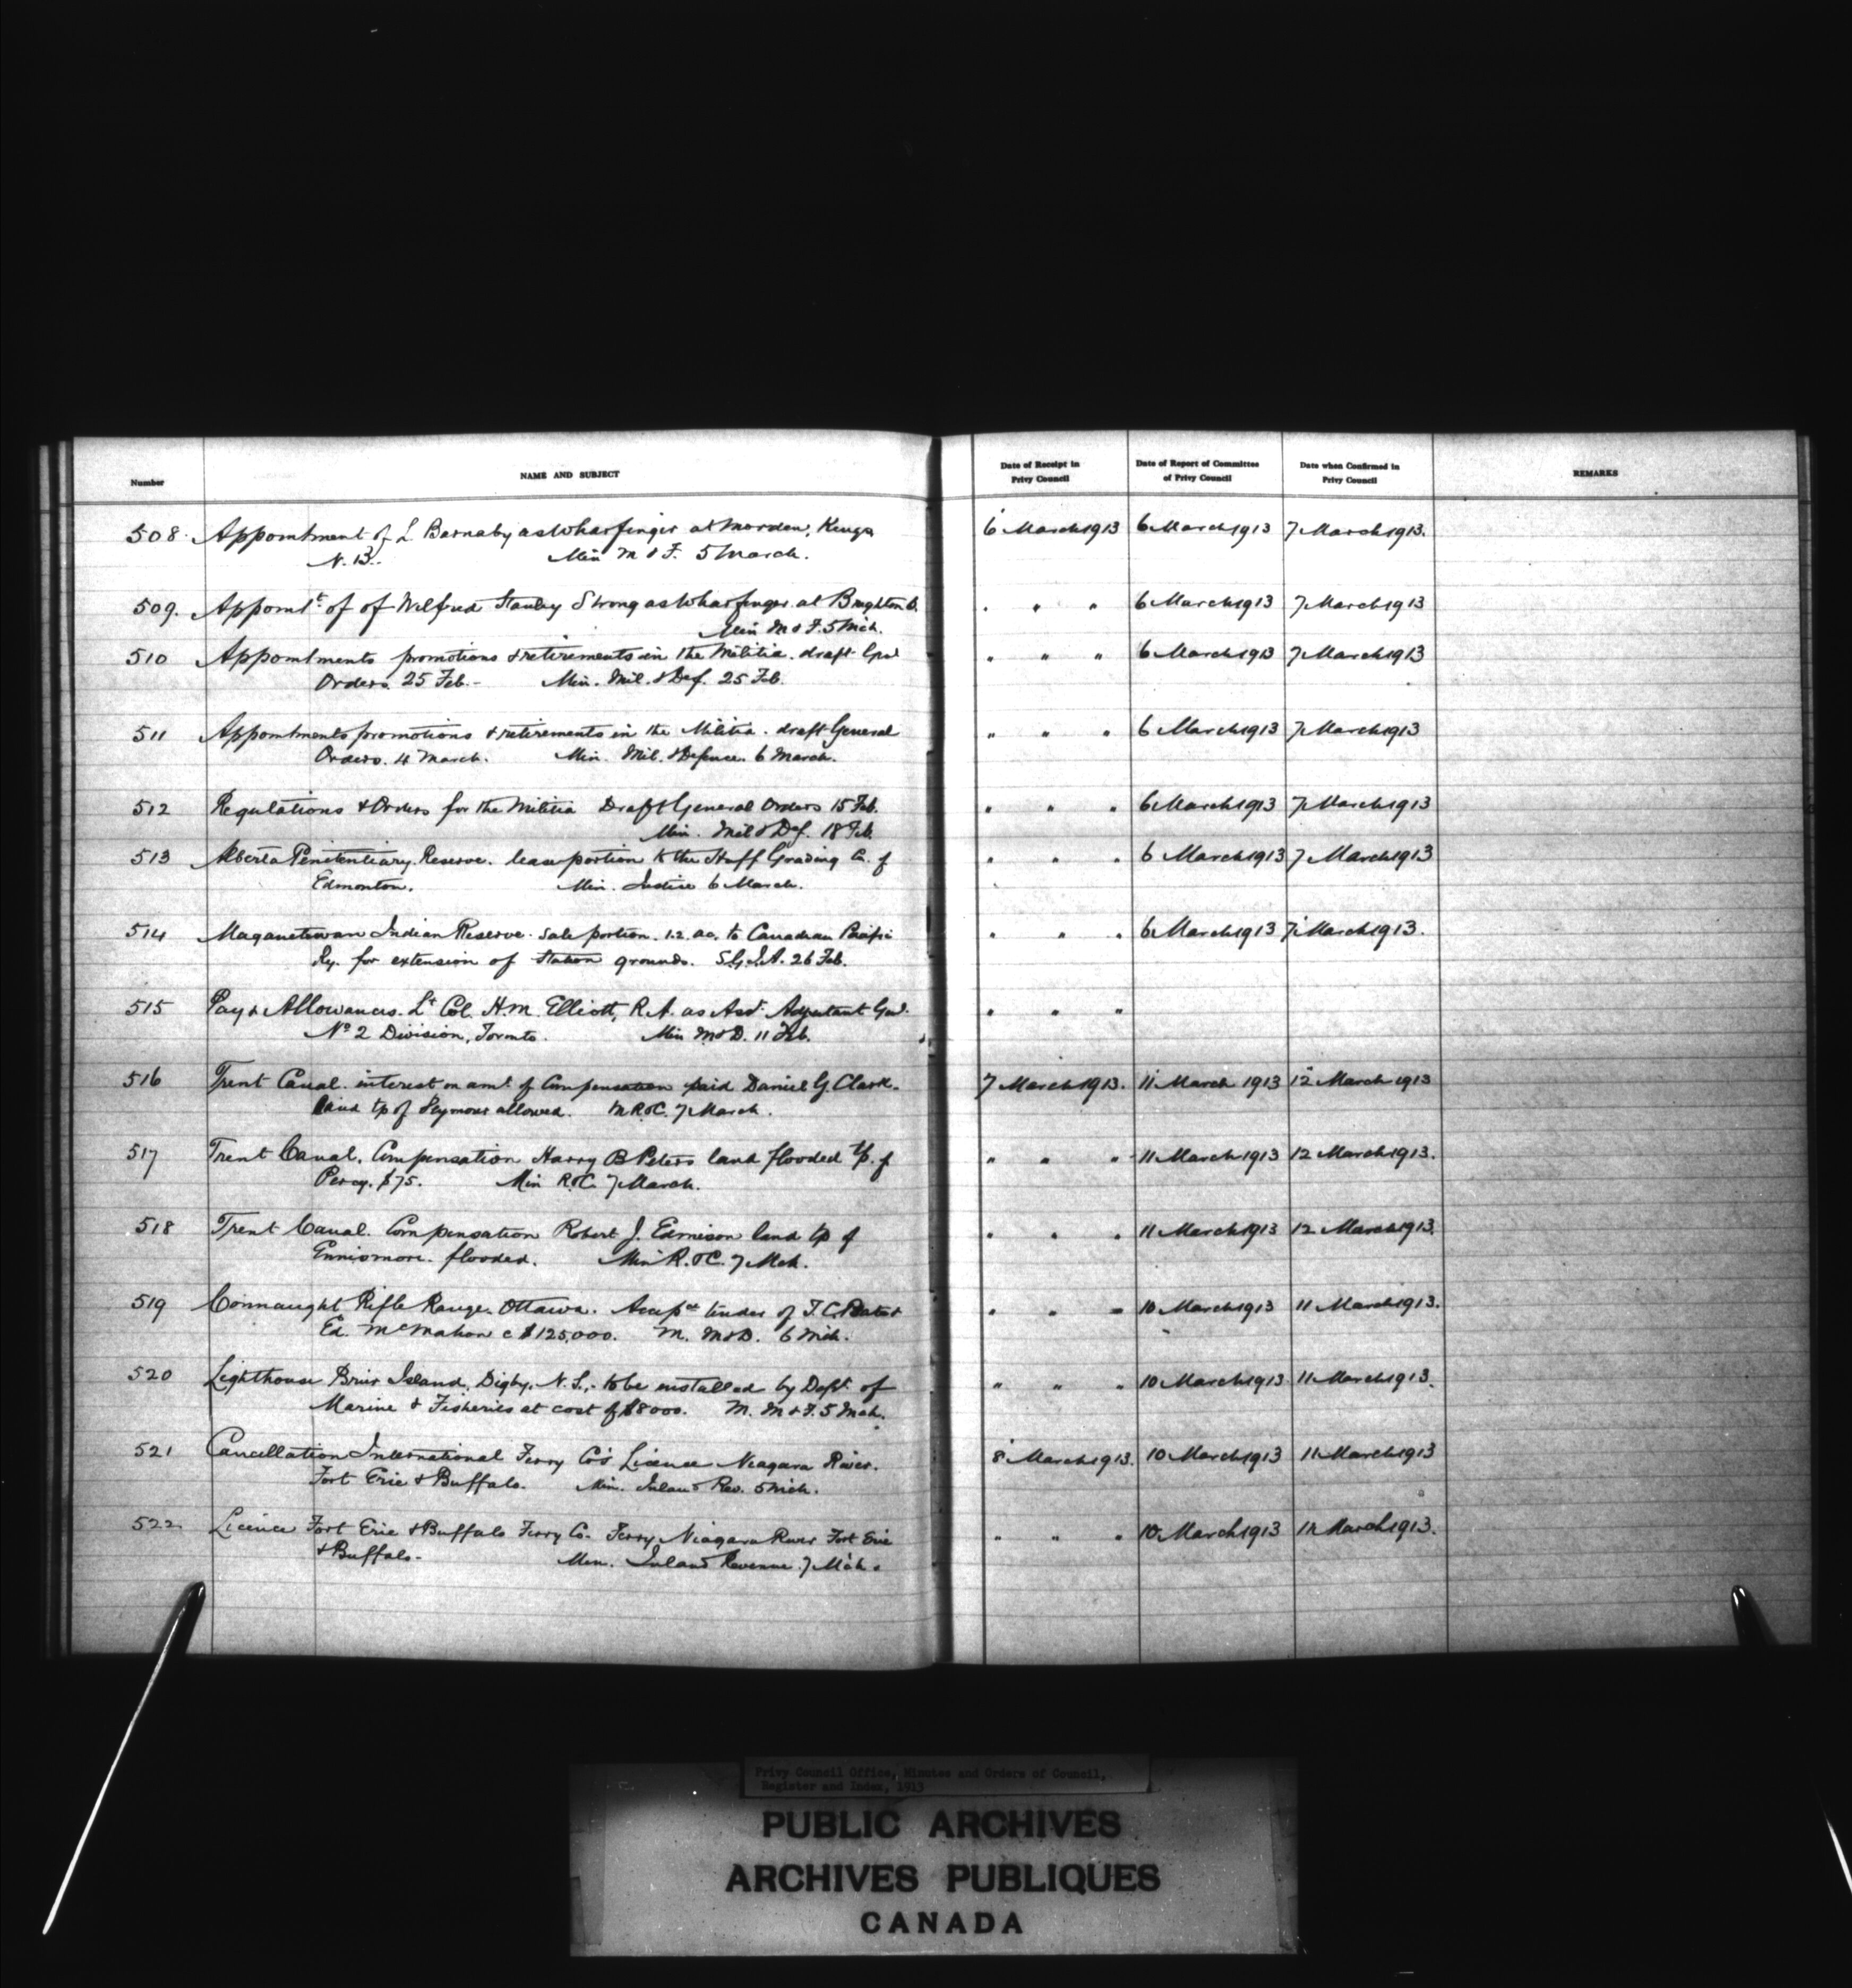 Number
NAME AND SUBJECT
Date of Receipt in
Privy Council
Date of Report of Committee
of Privy Council
Date when Confirmed in
Privy Council
REMARKS
508. Appointment of L Barnaby as Wharfinger at Morden, Kings 6 March 1913 6 March 1913 7 March 1913.
N.B. Min M & F. 5 March.
509. Appointt of of Wilfred Stanley Strong as Wharfinger at Brighton O. " " " 6 March 1913 7 March 1913
Min M & F. 5 Mch.
510 Appointments promotions & retirements in the Militia. draft Genl " " " 6 March 1913 7 March 1913
Orders. 25 Feb. - Min. Mil. & Def. 25 Feb.
511 Appointments promotions & retirements in the Militia. draft General " " " 6 March 1913 7 March 1913
Orders. 4 March. Min. Mil. & Defence. 6 March.
512 Regulations & Orders for the Militia Draft General Orders 15 Feb. " " " 6 March 1913 7 March 1913
Min. Mil & Def. 18 Feb.
513 Alberta Penitentiary Reserve. lease portion to the Huff Grading Co. of " " " 6 March 1913 7 March 1913
Edmonton. Min. Justice 6 March.
514 Maganetawan Indian Reserve. Sale portion. 1.2. ac. to Canadian Pacific " " " 6 March 1913 7 March 1913.
Ry. for extension of Station grounds. S.G.I.A. 26 Feb.
515 Pay & Allowances. Lt Col. H.M. Elliott, R.A. as Asst. Adjutant Genl. " " "
No 2 Division, Toronto. Min M & D. 11 Feb.
516 Trent Canal. interest on amt. of Compensation paid Daniel G. Clark. 7 March 1913. 11 March 1913 12 March 1913
land tp of Seymour allowed. M R & C. 7 March.
517 Trent Canal. Compensation Harry B Peters land flooded tp. of " " " 11 March 1913 12 March 1913.
Percy. $75. Min R & C 7 March.
518 Trent Canal. Compensation Robert J. Edmison land tp of " " " 11 March 1913 12 March 1913.
Ennismore. flooded. Min R. & C. 7 Mch.
519 Connaught Rifle Range. Ottawa. Accepce tender of T.C. Bate & " " " 10 March 1913 11 March 1913.
Ed. McMahon c $125,000. M. M & D. 6 Mch.
520 Lighthouse Brier Island, Digby, N.S.,- to be installed by Dept. of " " " 10 March 1913 11 March 1913.
Marine & Fisheries at cost of $8000. M. M & F. 5 Mch.
521 Cancellation International Ferry Co's Licence Niagara River. 8 March 1913. 10 March 1913 11 March 1913
Fort Erie & Buffalo. Min. Inland Rev. 5 Mch.
522. Licence Fort Erie & Buffalo Ferry Co. Ferry Niagara River Fort Erie " " " 10 March 1913 11 March 1913.
& Buffalo. - Min. Inland Revenue. 7 Mch.
Privy Council Office, Minutes and Orders of Council,
Register and Index, 1913
PUBLIC ARCHIVES
ARCHIVES PUBLIQUES
CANADA